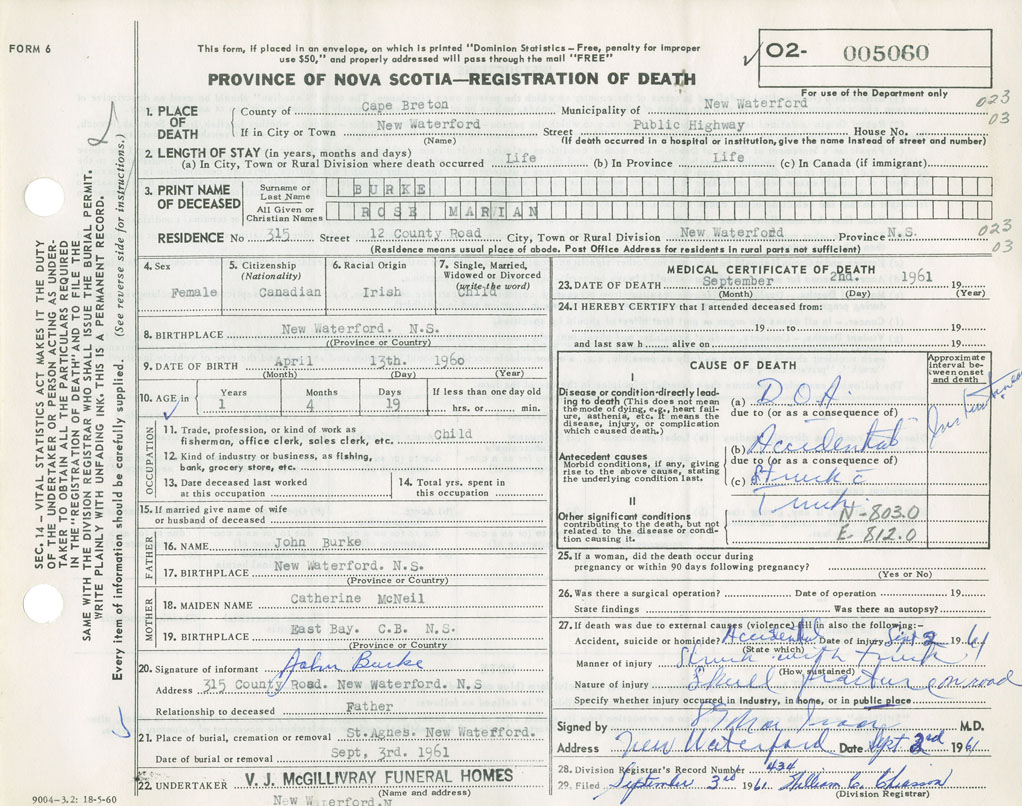 FORM 6
This form, if placed in an envelope, on which is printed "Dominion Statistics – Free, penalty for improper
use $50," and properly addressed will pass through the mail "FREE"
PROVINCE OF NOVA SCOTIA—REGISTRATION OF DEATH
✓O2- 005060
For use of the Department only
023
03
1. PLACE OF DEATH
County of Cape Breton Municipality of New Waterford
If in City or Town New Waterford Street Public Highway House No.
(Name) (If death occurred in a hospital or institution, give the name instead of street and number)
2. LENGTH OF STAY (in years, months and days)
(a) In City, Town or Rural Division where death occurred Life (b) In Province Life (c) In Canada (if immigrant)
3. PRINT NAME OF DECEASED
Surname or Last Name BURKE
All Given or Christian Names ROSE MARIAN
RESIDENCE No 315 Street 12 County Road City, Town or Rural Division New Waterford Province N.S.
(Residence means usual place of abode. Post Office Address for residents in rural parts not sufficient)
023
03
4. Sex Female
5. Citizenship (Nationality) Canadian
6. Racial Origin Irish
7. Single, Married, Widowed or Divorced (write the word) Child
8. BIRTHPLACE New Waterford. N.S.
(Province or Country)
9. DATE OF BIRTH April 13th. 1960
(Month) (Day) (Year)
10. AGE in Years Months Days If less than one day old
1 4 19 hrs. or min.
OCCUPATION
11. Trade, profession, or kind of work as
fisherman, office clerk, sales clerk, etc. Child
12. Kind of industry or business, as fishing,
bank, grocery store, etc.
13. Date deceased last worked
at this occupation
14. Total yrs. spent in
this occupation
15. If married give name of wife
or husband of deceased
FATHER
16. NAME John Burke
17. BIRTHPLACE New Waterford. N.S.
(Province or Country)
MOTHER
18. MAIDEN NAME Catherine McNeil
19. BIRTHPLACE East Bay. C.B. N.S.
(Province or Country)
20. Signature of informant John Burke
Address 315 County Road. New Waterford. N.S
Relationship to deceased Father
21. Place of burial, cremation or removal St.Agnes. New Watefford.
Date of burial or removal Sept, 3rd. 1961
22. UNDERTAKER V. J. McGILLIVRAY FUNERAL HOMES
(Name and address)
New Waterford.N
9004–3.2: 18-5-60
MEDICAL CERTIFICATE OF DEATH
23. DATE OF DEATH September 2nd. 1961 19
(Month) (Day) (Year)
24. I HEREBY CERTIFY that I attended deceased from:
19 to 19
and last saw h alive on 19
CAUSE OF DEATH
Approximate interval between onset and death
I
Disease or condition directly leading
to death (This does not mean
the mode of dying, e.g., heart failure,
asthenia, etc. It means the
disease, injury, or complication
which caused death.)
(a) D.O.A.
due to (or as a consequence of)
Antecedent causes
Morbid conditions, if any, giving
rise to the above cause, stating
the underlying condition last.
(b) Accidental
due to (or as a consequence of)
(c) Struck c
Truck
II
Other significant conditions
contributing to the death, but not
related to the disease or condition
causing it.
N-803.0
E. 812.0
25. If a woman, did the death occur during
pregnancy or within 90 days following pregnancy?
(Yes or No)
26. Was there a surgical operation? Date of operation 19
State findings Was there an autopsy?
27. If death was due to external causes (violence) fill in also the following:-
Accident, suicide or homicide? Accidental Date of injury Sept 2 1961
(State which)
Manner of injury Struck with truck
(How sustained)
Nature of injury Skull fracture on road
Specify whether injury occurred in industry, in home, or in public place
Signed by M.D.
Address New Waterford Date Sept 2nd 1961
28. Division Registrar's Record Number 434
29. Filed September 3rd 1961 William C. Chiasson
(Division Registrar)
SEC. 14 – VITAL STATISTICS ACT MAKES IT THE DUTY
OF THE UNDERTAKER OR PERSON ACTING AS UNDERTAKER
TO OBTAIN ALL THE PARTICULARS REQUIRED
IN THE "REGISTRATION OF DEATH" AND TO FILE THE
SAME WITH THE DIVISION REGISTRAR WHO SHALL ISSUE THE BURIAL PERMIT.
WRITE PLAINLY WITH UNFADING INK. THIS IS A PERMANENT RECORD.
Every item of information should be carefully supplied. (See reverse side for instructions.)